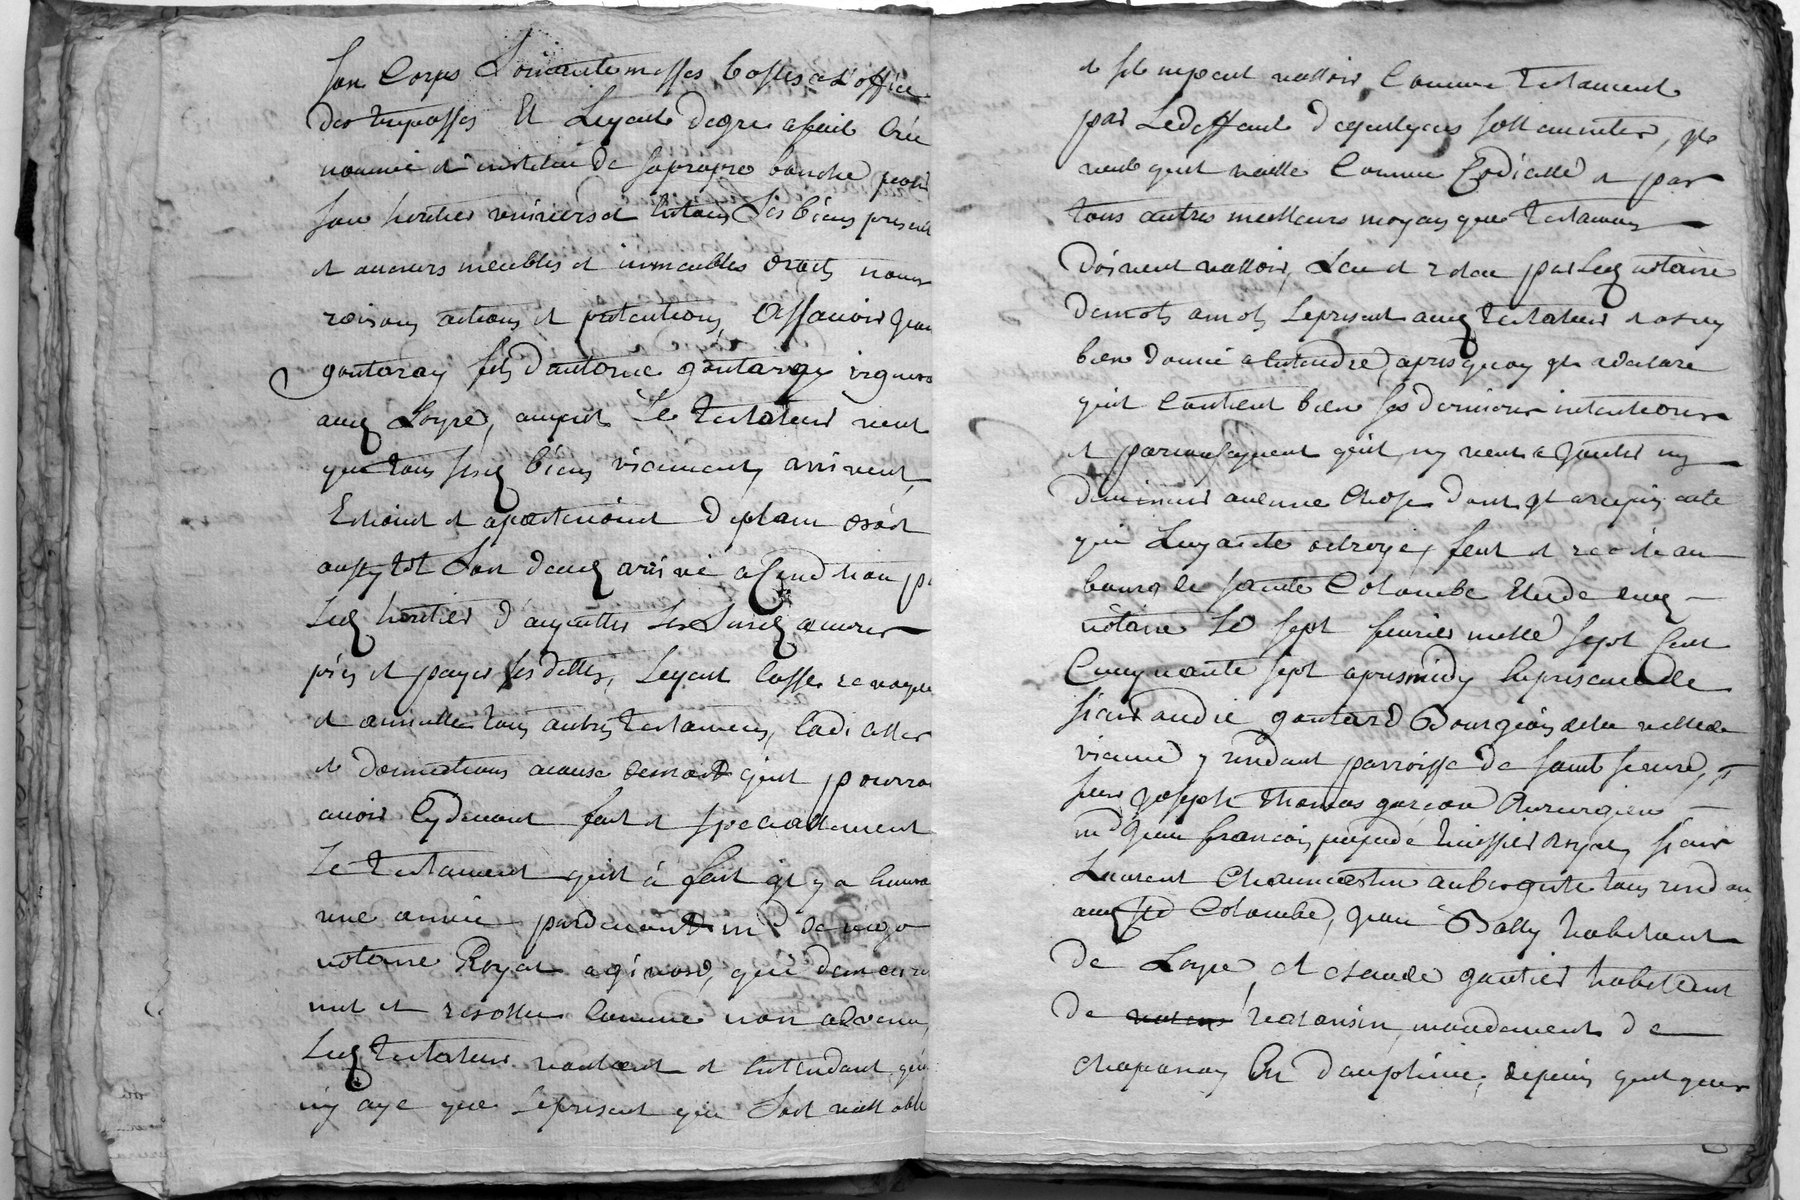 son Corps Soixante messes basses a L'office
des trepasses Et Leyant de gre a fait Cree
nommé et institué de sa propre bouche pour
son heritier universel en tous ses biens present
et avenirs meubles et immeubles droits noms
raisons actions et pretentions, assavoir Jean
gontaray fils d'antoine gontaray vigneron
aud Loyre, auquel Le testateur veut
que tous sesd biens viennent, arrivent,
Echoient et apartienoient de plain droit
aussytot Son deces arrivé a Condition p
Led heritier d'acquitter Les Susd œuvres
pies et payer ses dettes, Leyant Casse revoque
et annulle tous autres testamens, Codicilles
et donnations a cause de mort qu'il pourroit
avoir Cydevant fait et specialement
Le testament qu'il à fait il y a environ
une année pardevant me de
notaire Royal a givors, qui demeurera
nul et resollu Comme non advenu,
Led testateur voulant et Entendant que
n'y aye que Le present qui Soit vallable
et s'il ne peut valloir Comme testament
par Le deffaut de quelques sollemnites, il
veut qu'il vaille Comme Codicille et par
tous autres meilleurs moyens que testamens
doivent valloir, Leu et releu par Led notaire
de mots a mots Le present aud testateur et a sy
bien donné a Entendre, apres quoy il a declaré
qu'il Contient bien ses dernieres intentions
et par consequent qu'il n'y veut ajouter ny
diminuer aucune Chose dont il a requis acte
que Luy ait octroyé, fait et recité au
bourg de sainte Colombe Etude dud
notaire Le sept fevrier mille sept Cent
Cinquante sept apres midy En presence de
sieur andré gontard Bourgeois de la ville de
vienne y residant parroisse de saint severe,
sieur joseph thomas garçon Chirurgien
me jean francois huissier Royal, sieur
Laurent aubergiste tous residant
aud Ste Colombe, jean Bally habitant
de Loyre, et claude gautier habitant
de mandement de
chaponay En dauphiné, depuis quelques